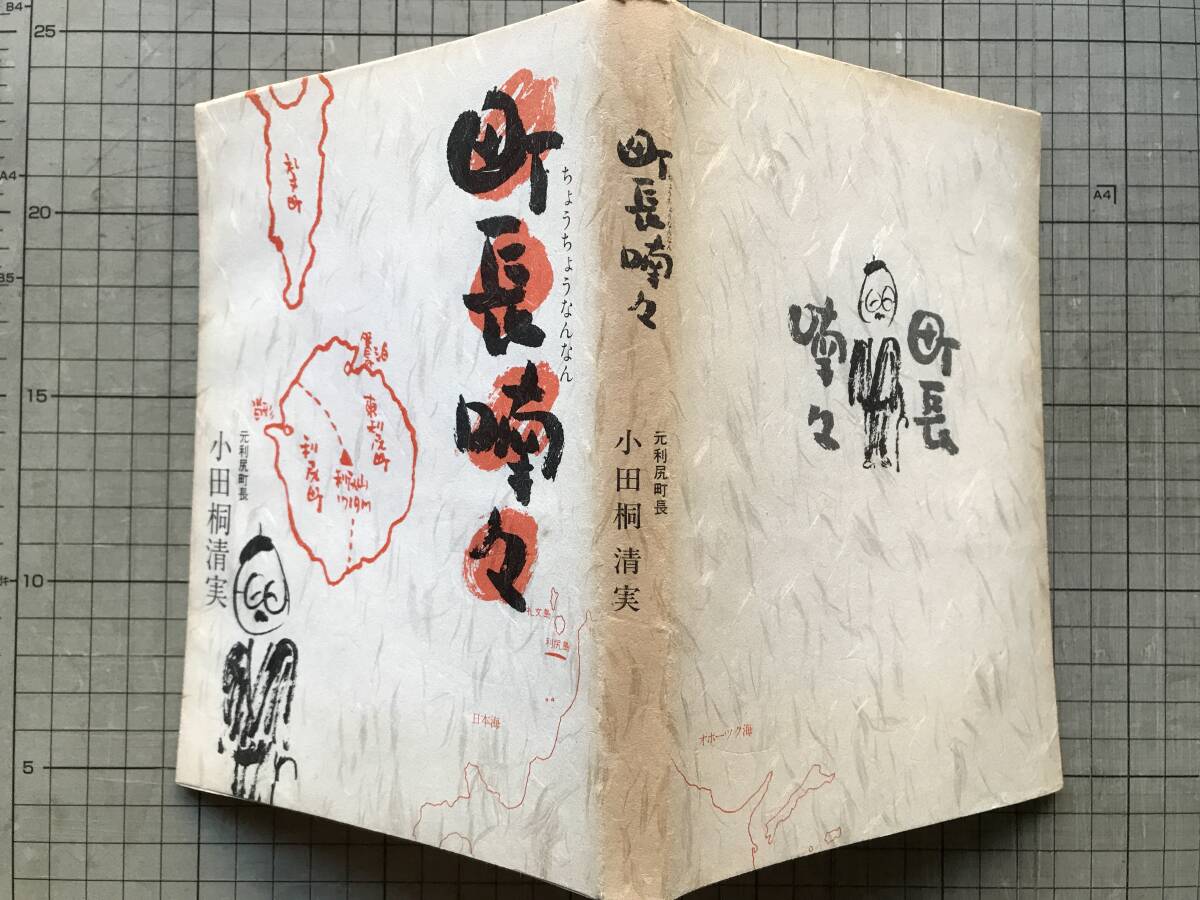 町長喃々
ちょうちょうなんなん
元利尻町長
小田桐清実
礼文町
鴛泊
沓形
東利尻町
利尻町
利尻山
1719M
礼文島
利尻島
日本海
町長喃々
元利尻町長
小田桐 清実
町長
喃々
オホーツク海
B4
25
A4
20
B5
15
10
5
A4